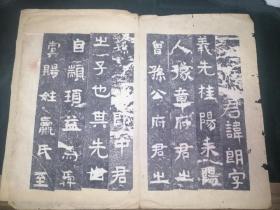 君諱朗字
義先桂陽耒陽
人豫章府君之
曾孫公府君之
孫郎中君
之子也其先出
自顓頊益為舜
虞賜姓嬴氏至